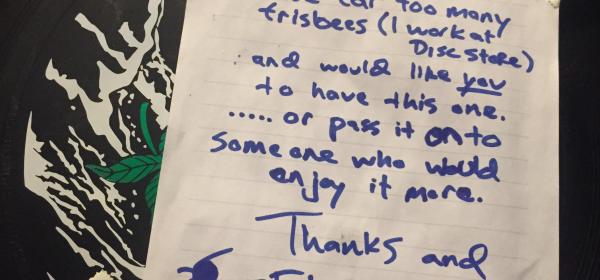 far too many
frisbees (I work at
Disc Store)
and would like you
to have this one.
..... or pass it onto
someone who would
enjoy it more.
Thanks and